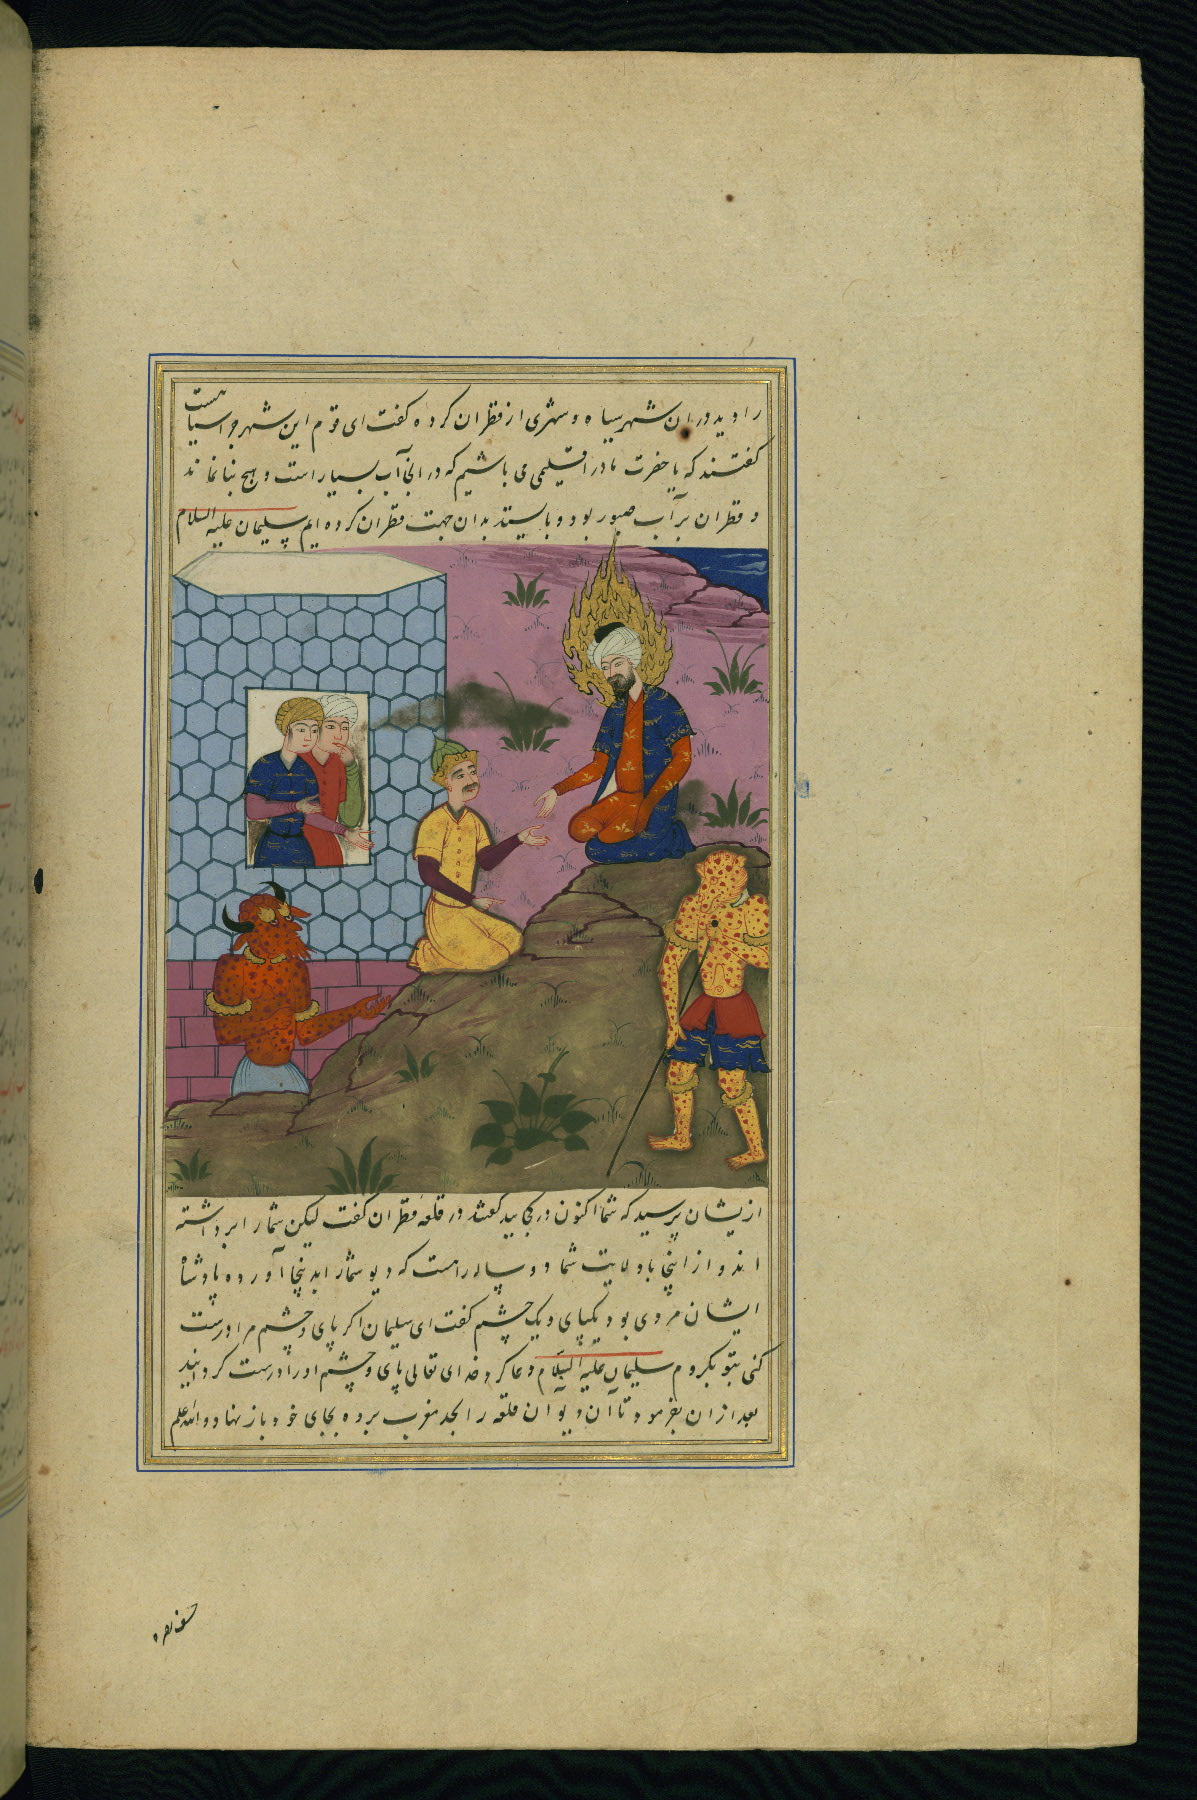 را دید در ان شهر سیاه و شهری از قطران کرده گفت ای قوم این شهر چرا سیاهست
گفتند که یا حضرت ما در اقلیمی می باشیم که در انجا آب بسیار است و هیچ بنا نماند
و قطران بر آب صبور بود و بایستد بدان جهت قطران کرده ایم سلیمان علیه السلام
ازیشان پرسید که شما اکنون در کجایید گفتند در قلعه قطران گفت لیکن شما را برداشته
اند و از اینجا با ولایت شما دو ساله راهست که دیو شما را بدینجا آورده پادشاه
ایشان مردی بود یکپای و یک چشم گفت ای سلیمان اکر پای و چشم مرا درست
کنی بتو بکروم سلیمان علیه السلام دعا کرد خدای تعالی پای و چشم او را درست کردانید
بعد از ان بفرمود تا آن دیو ان قلعه را بحد مغرب برده بجای خود باز نهاد و الله اعلم